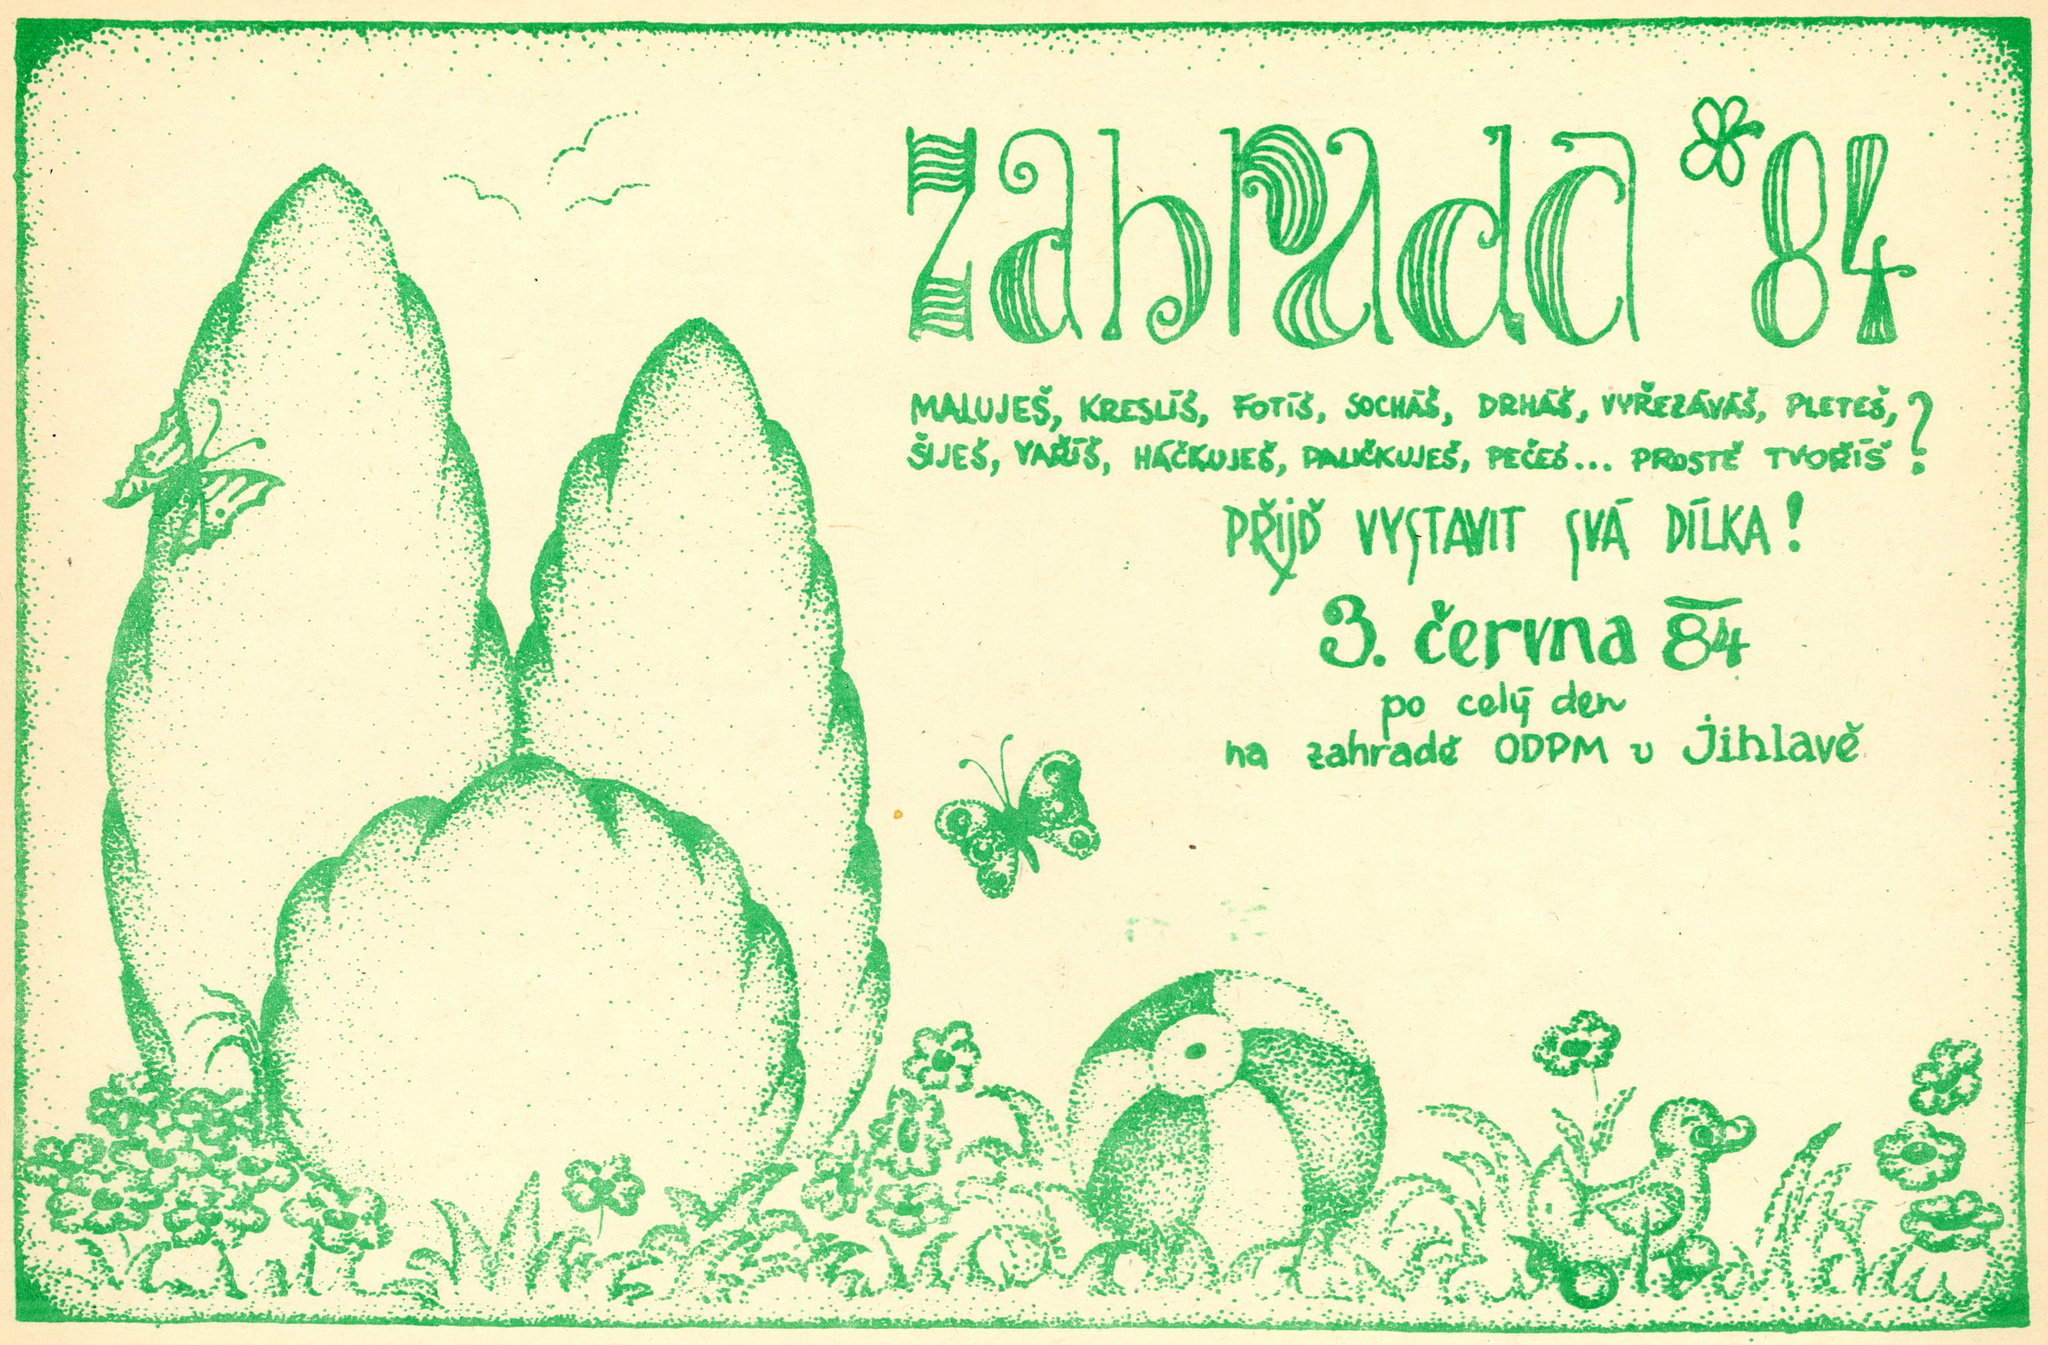 zahrada '84
MALUJEŠ, KRESLÍŠ, FOTÍŠ, SOCHÁŠ, DRHÁŠ, VYŘEZÁVÁŠ, PLETEŠ,
ŠIJEŠ, VAŘÍŠ, HÁČKUJEŠ, PALIČKUJEŠ, PEČEŠ... PROSTĚ TVOŘÍŠ?
PŘIJĎ VYSTAVIT SVÁ DÍLKA!
3. června 84
po celý den
na zahradě ODPM v Jihlavě